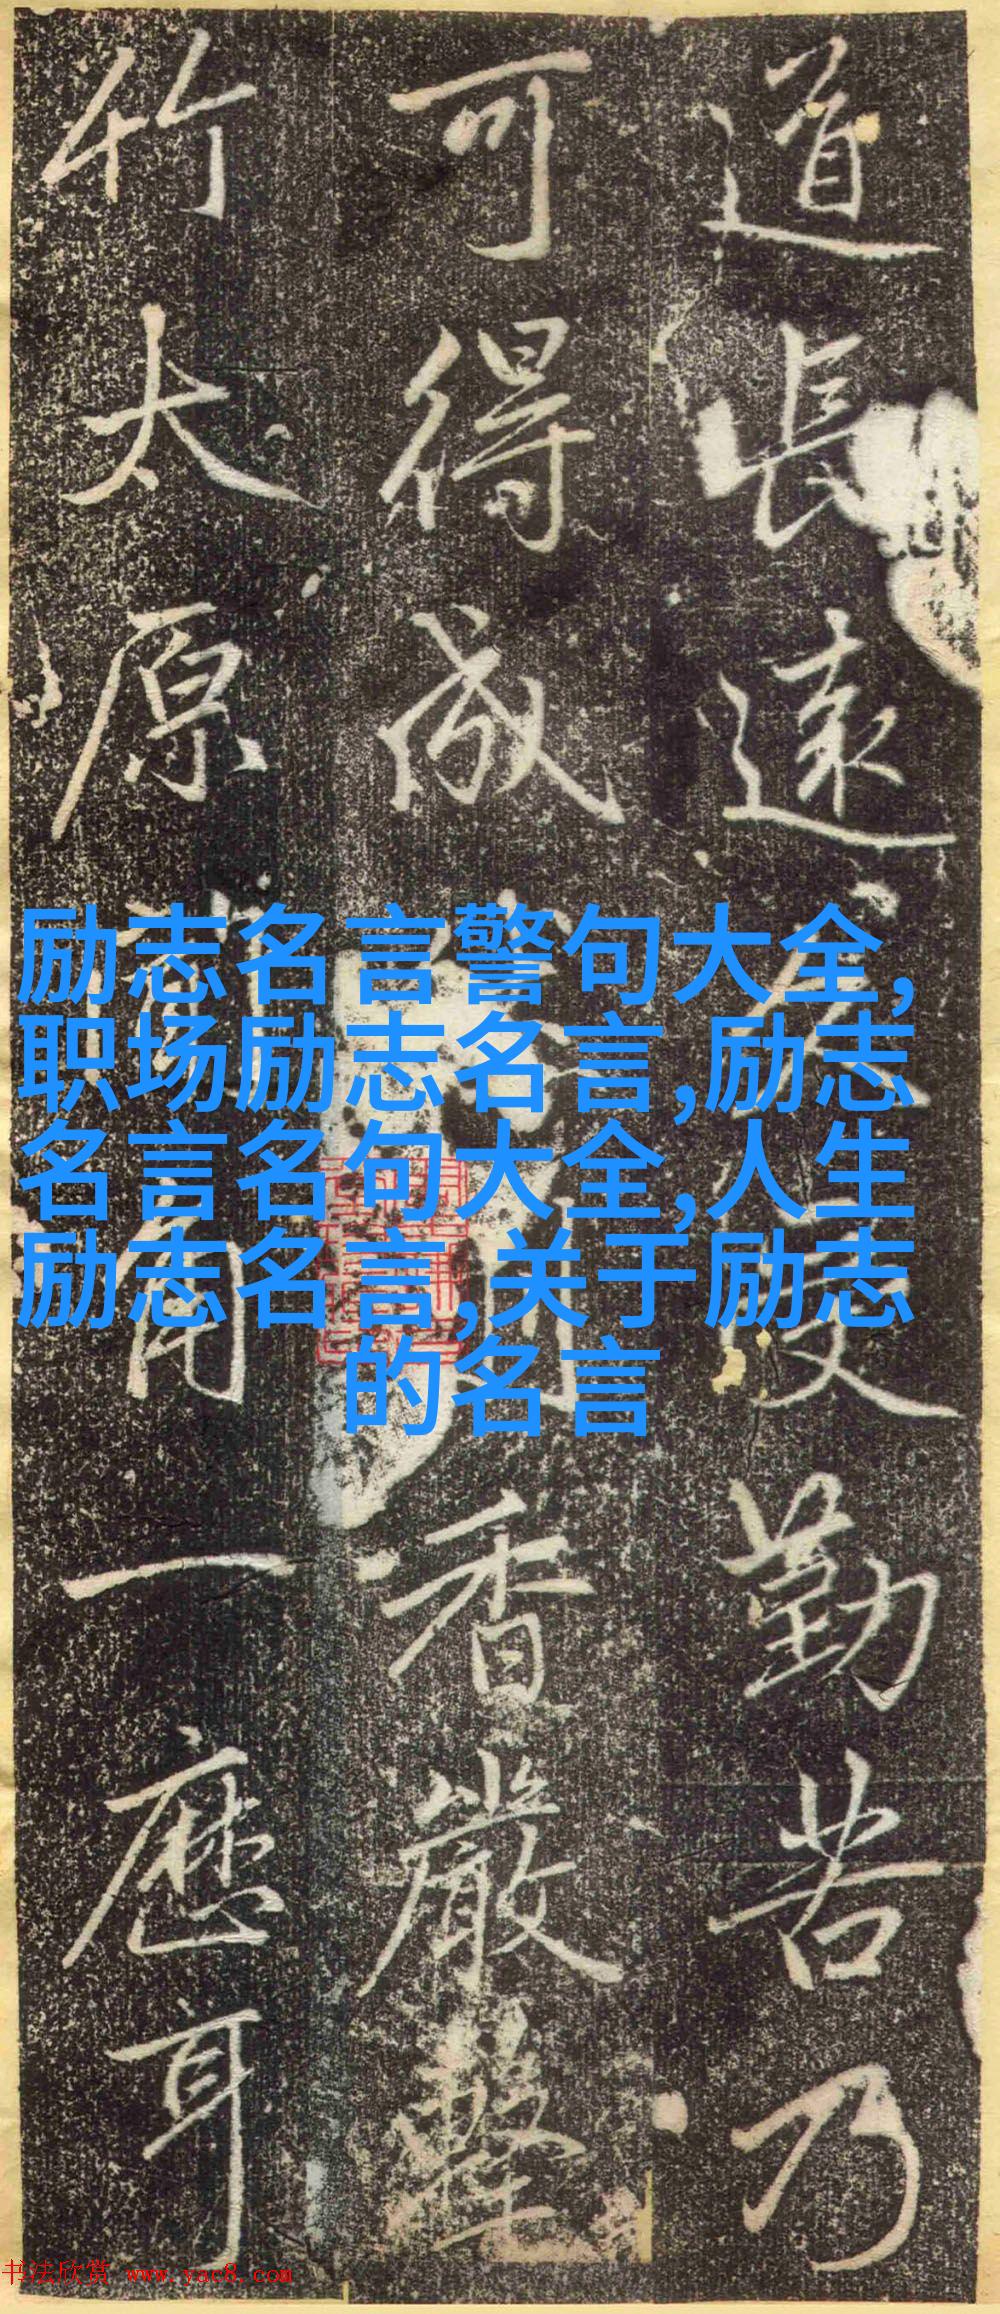 道長遠久受勤苦乃
可得成 香嚴擊
竹太原 角一應耳
励志名言警句大全,
职场励志名言,励志
名言名句大全,人生
励志名言,关于励志
的名言
书法欣赏 www.yac8.com